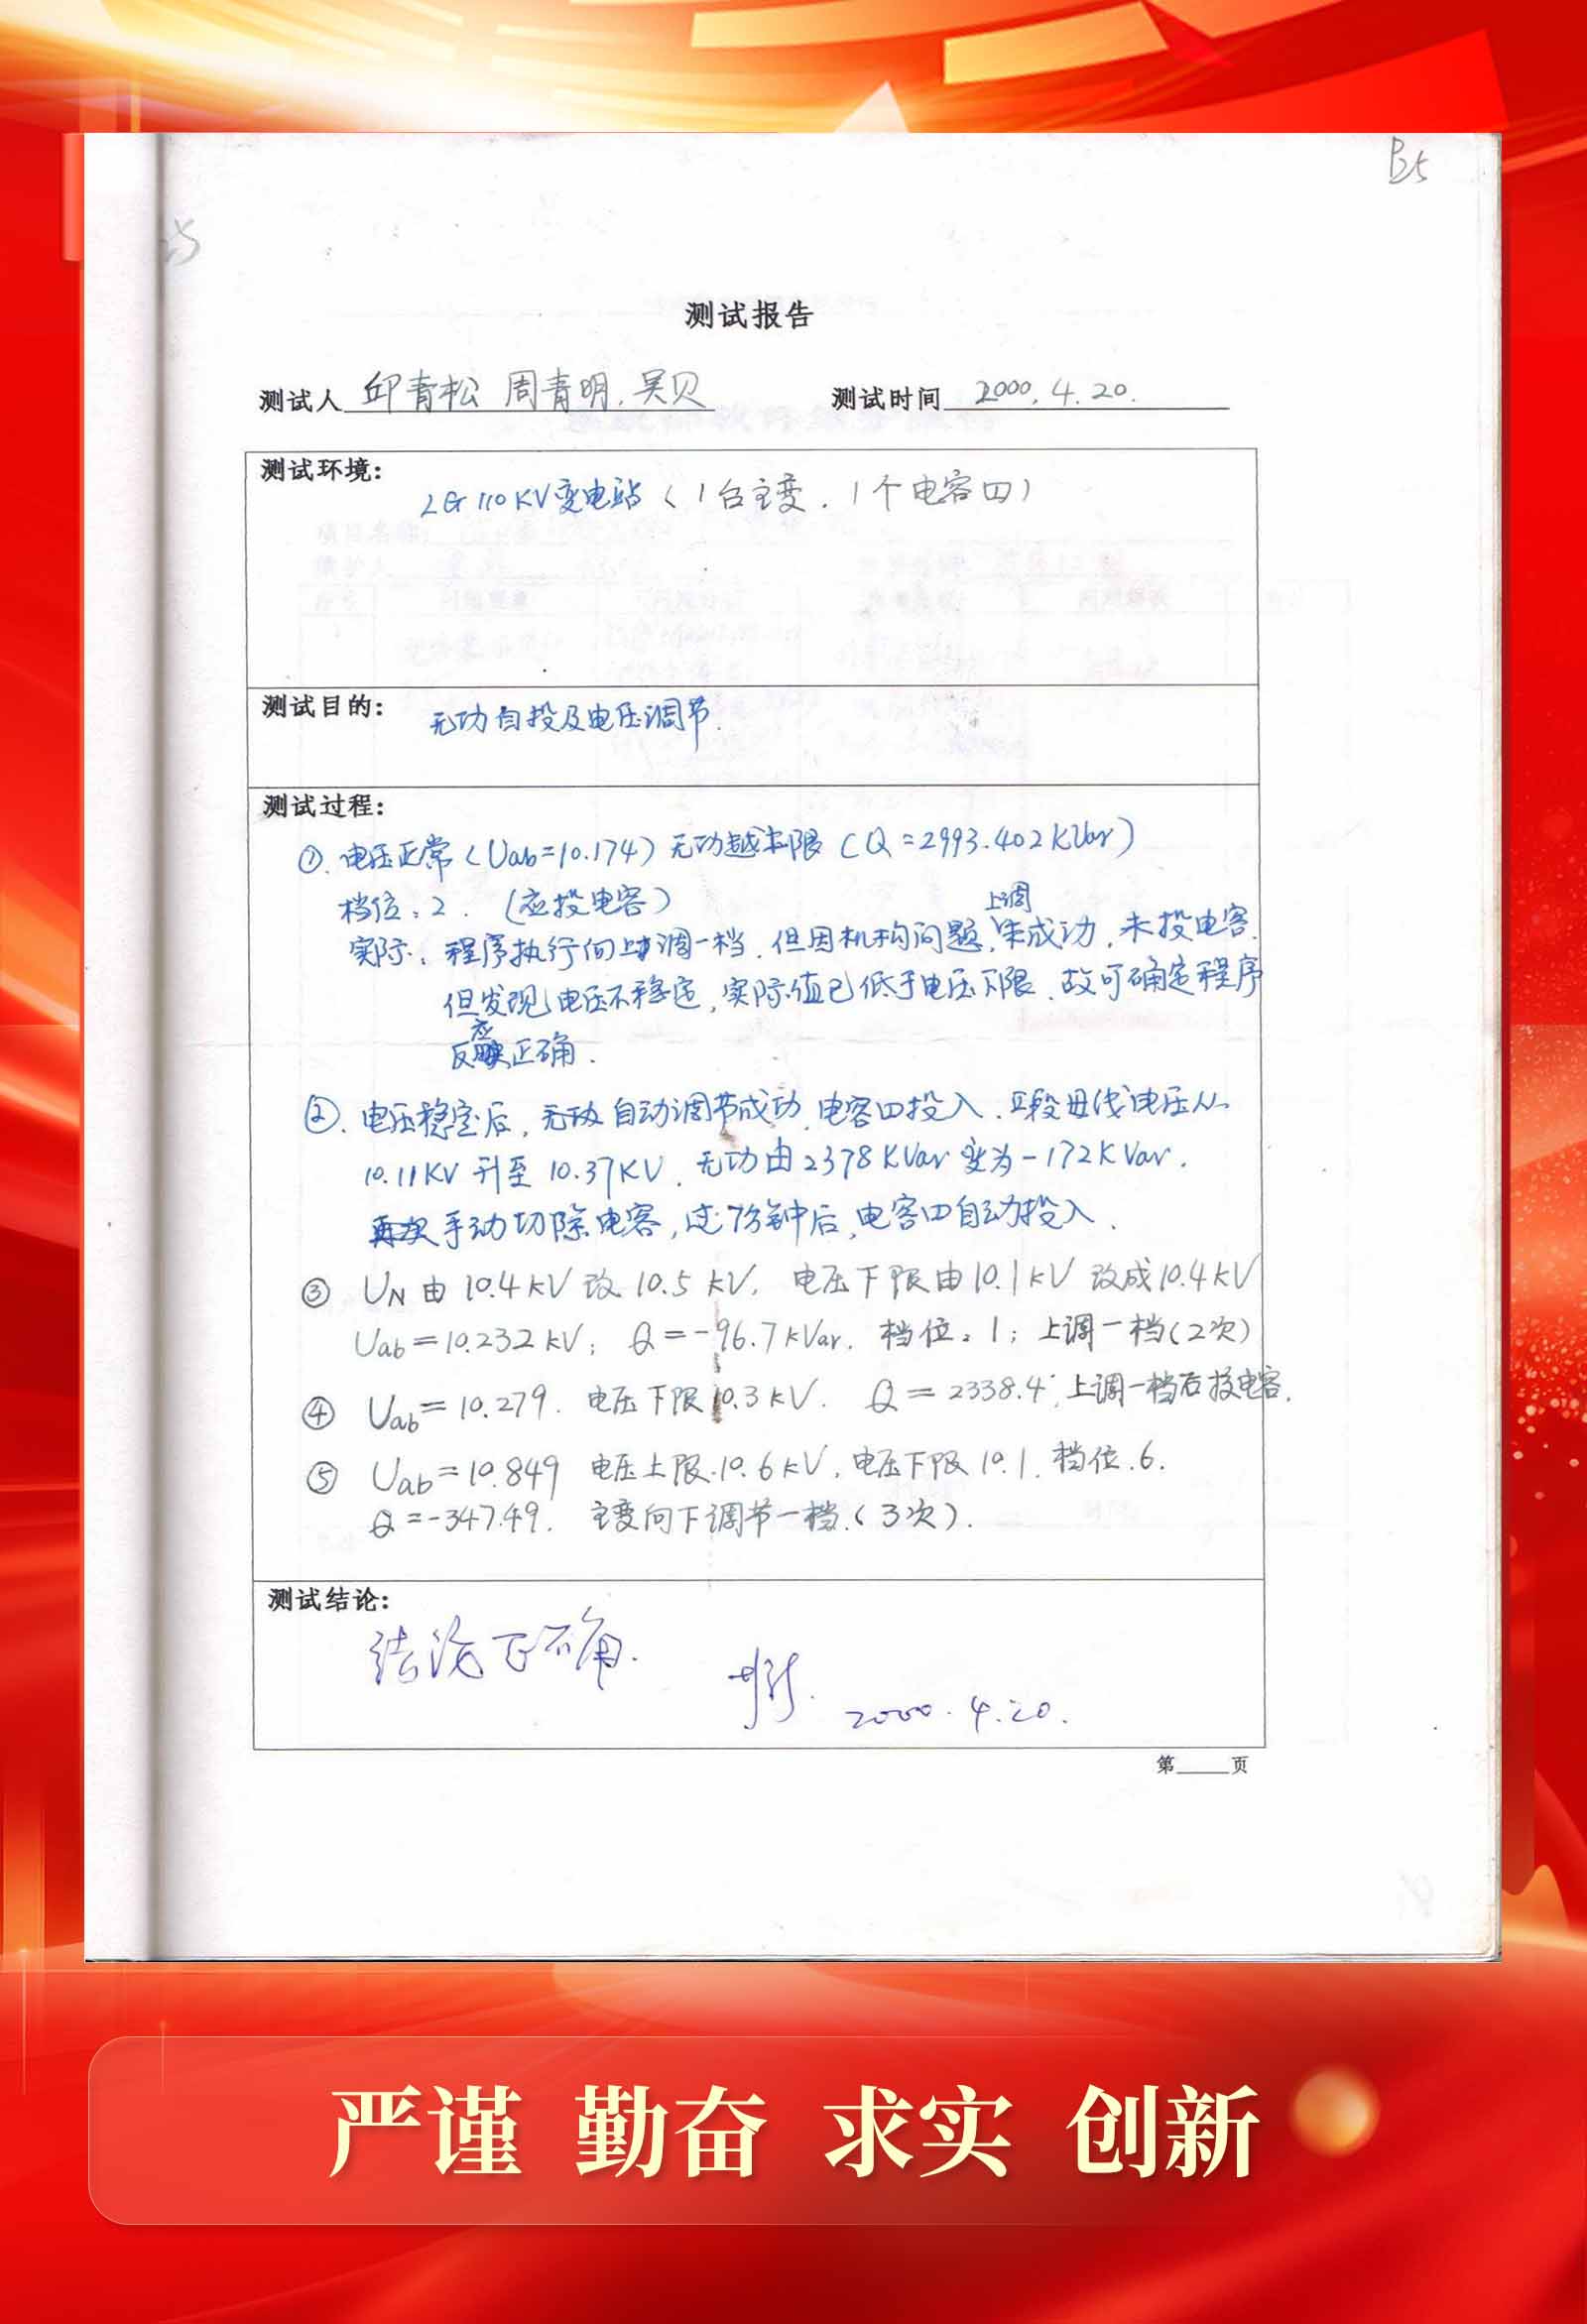 P25
25
测试报告
测试人 邱青松 周青明. 吴贝 测试时间 2000. 4. 20.
测试环境:
LG 110KV变电站 (1台主变. 1个电容四)
测试目的: 无功自投及电压调节.
测试过程:
①. 电压正常 (Uab=10.174) 无功越上限 (Q=2993.402KVar)
档位: 2. (应投电容)
上调
实际: 程序执行向上调一档. 但因机构问题, 未成功, 未投电容.
但发现电压不稳定, 实际值已低于电压下限. 故可确定程序
反应正确.
②. 电压稳定后, 无功自动调节成功, 电容四投入. 段母线电压从
10.11KV 升至 10.37KV. 无功由2378KVar 变为-172KVar.
再次手动切除电容, 过7分钟后, 电容四自动投入.
③ UN 由 10.4kV 改 10.5 kV, 电压下限由10.1kV 改成10.4kV
Uab=10.232kV; Q=-96.7kVar. 档位: 1; 上调一档(2次)
④ Uab=10.279. 电压下限10.3kV. Q=2338.4, 上调一档后投电容.
⑤ Uab=10.849 电压上限.10.6kV, 电压下限10.1. 档位.6.
Q=-347.49. 主变向下调节一档.(3次).
测试结论:
结论正确.
2000.4.20.
第 页
严谨 勤奋 求实 创新